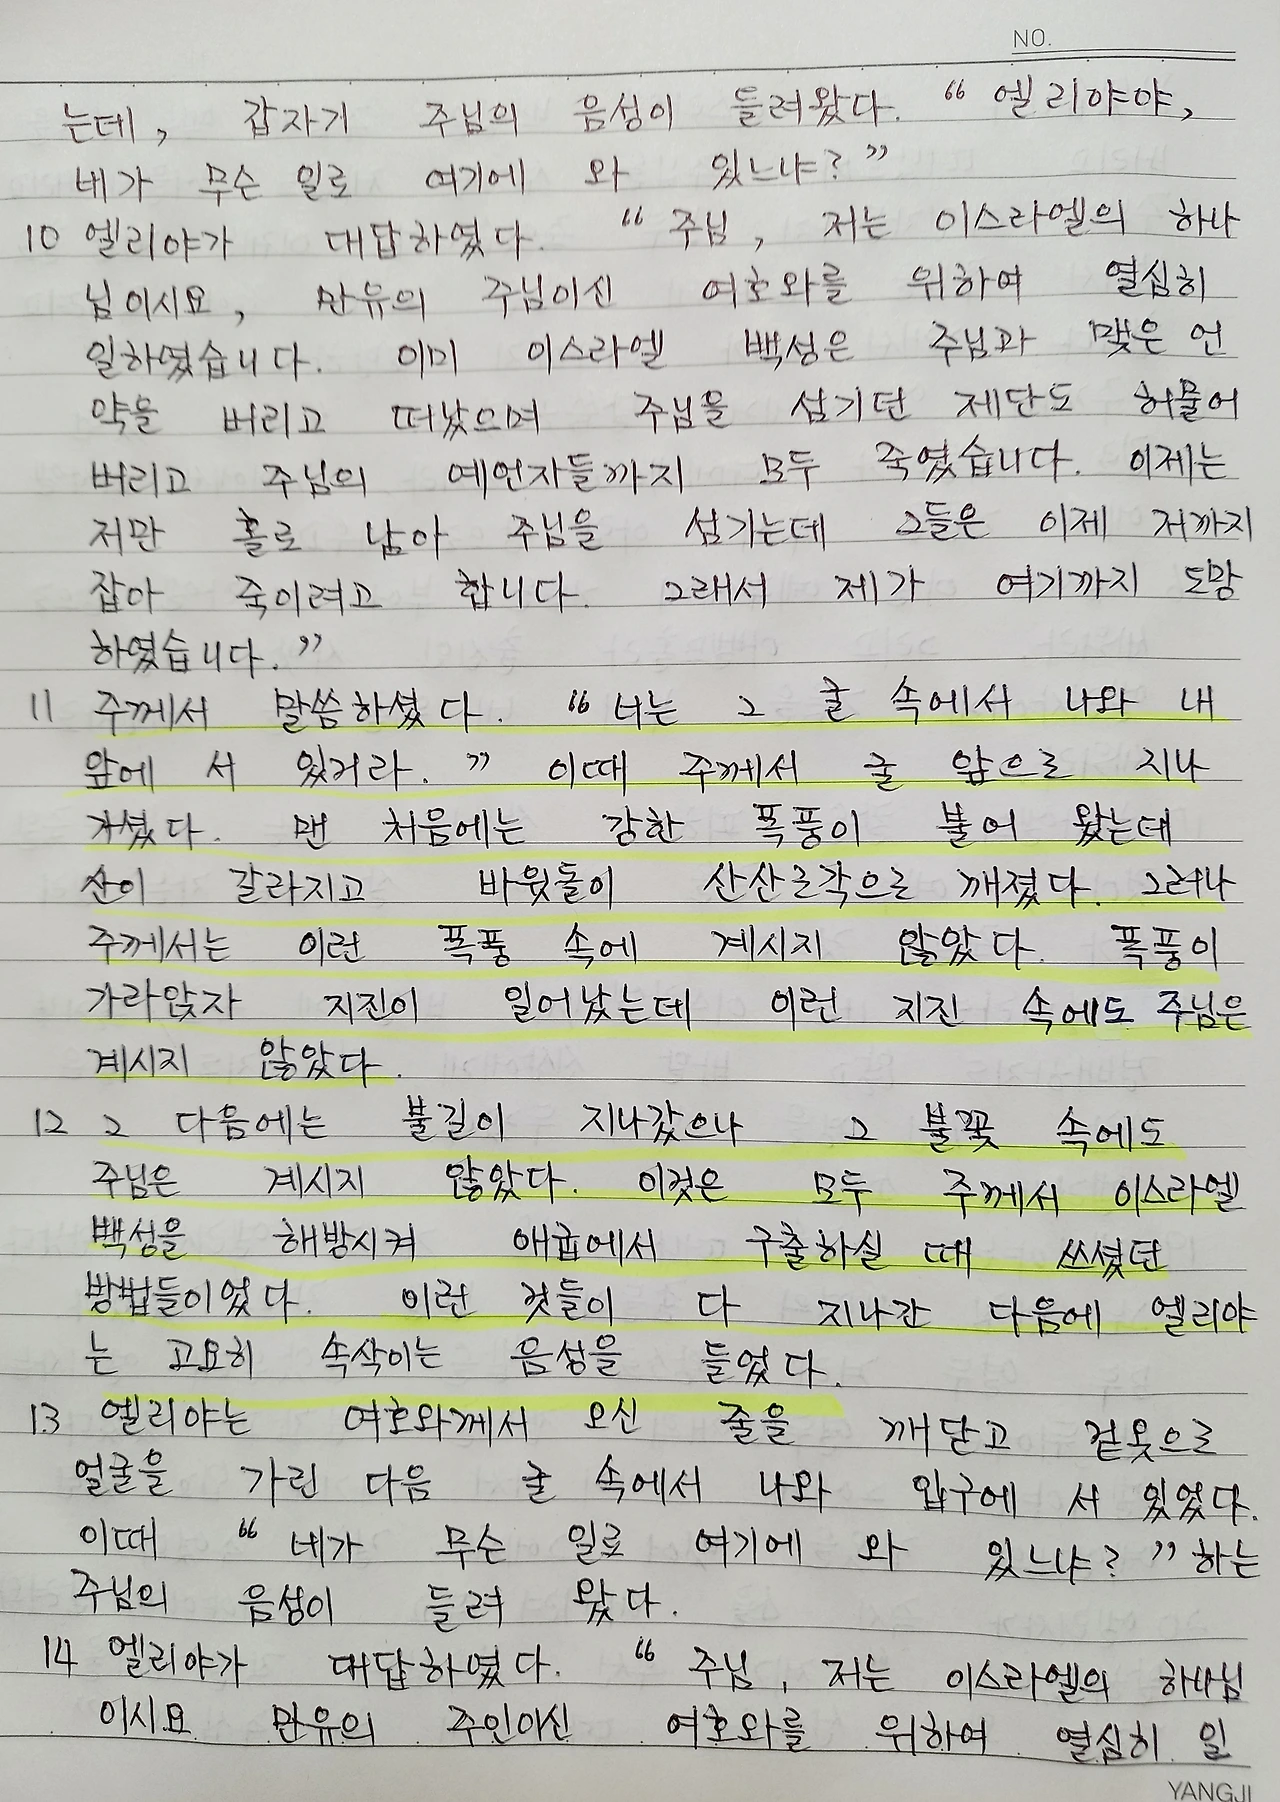 NO.
는데, 갑자기 주님의 음성이 들려왔다. “엘리야야,
네가 무슨 일로 여기에 와 있느냐?”
10 엘리야가 대답하였다. “주님, 저는 이스라엘의 하나
님이시요, 만유의 주님이신 여호와를 위하여 열심히
일하였습니다. 이미 이스라엘 백성은 주님과 맺은 언
약을 버리고 떠났으며 주님을 섬기던 제단도 허물어
버리고 주님의 예언자들까지 모두 죽였습니다. 이제는
저만 홀로 남아 주님을 섬기는데 그들은 이제 저까지
잡아 죽이려고 합니다. 그래서 제가 여기까지 도망
하였습니다.”
11 주께서 말씀하셨다. “너는 그 굴 속에서 나와 내
앞에 서 있거라.” 이때 주께서 굴 앞으로 지나
가셨다. 맨 처음에는 강한 폭풍이 불어 왔는데
산이 갈라지고 바윗돌이 산산조각으로 깨졌다. 그러나
주께서는 이런 폭풍 속에 계시지 않았다. 폭풍이
가라앉자 지진이 일어났는데 이런 지진 속에도 주님은
계시지 않았다.
12 그 다음에는 불길이 지나갔으나 그 불꽃 속에도
주님은 계시지 않았다. 이것은 모두 주께서 이스라엘
백성을 해방시켜 애굽에서 구출하실 때 쓰셨던
방법들이었다. 이런 것들이 다 지나간 다음에 엘리야
는 고요히 속삭이는 음성을 들었다.
13 엘리야는 여호와께서 오신 줄을 깨닫고 겉옷으로
얼굴을 가린 다음 굴 속에서 나와 입구에 서 있었다.
이때 “네가 무슨 일로 여기에 와 있느냐?” 하는
주님의 음성이 들려 왔다.
14 엘리야가 대답하였다. “주님, 저는 이스라엘의 하나님
이시요 만유의 주인이신 여호와를 위하여 열심히 일
YANGJI